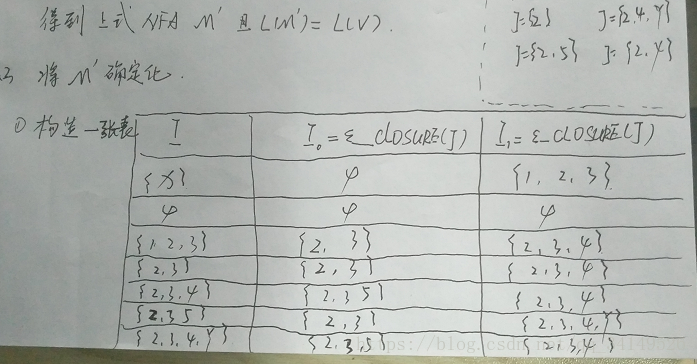 得到上式 NFA M' 且 L(M')= L(V).
J={2} J={2,4,Y}
J={2,5} J={2,Y}
将 M' 确定化.
① 构造一张表
I I₀=ε_CLOSURE(J) I₁=ε_CLOSURE(J)
{X} φ {1, 2, 3}
φ φ φ
{1,2,3} {2, 3} {2,3,4}
{2,3} {2,3} {2,3,4}
{2,3,4} {2,3 5} {2,3,4}
{2,3 5} {2,3} {2,3,4,Y}
{2,3,4,Y} {2,3,5} {2,3,4}